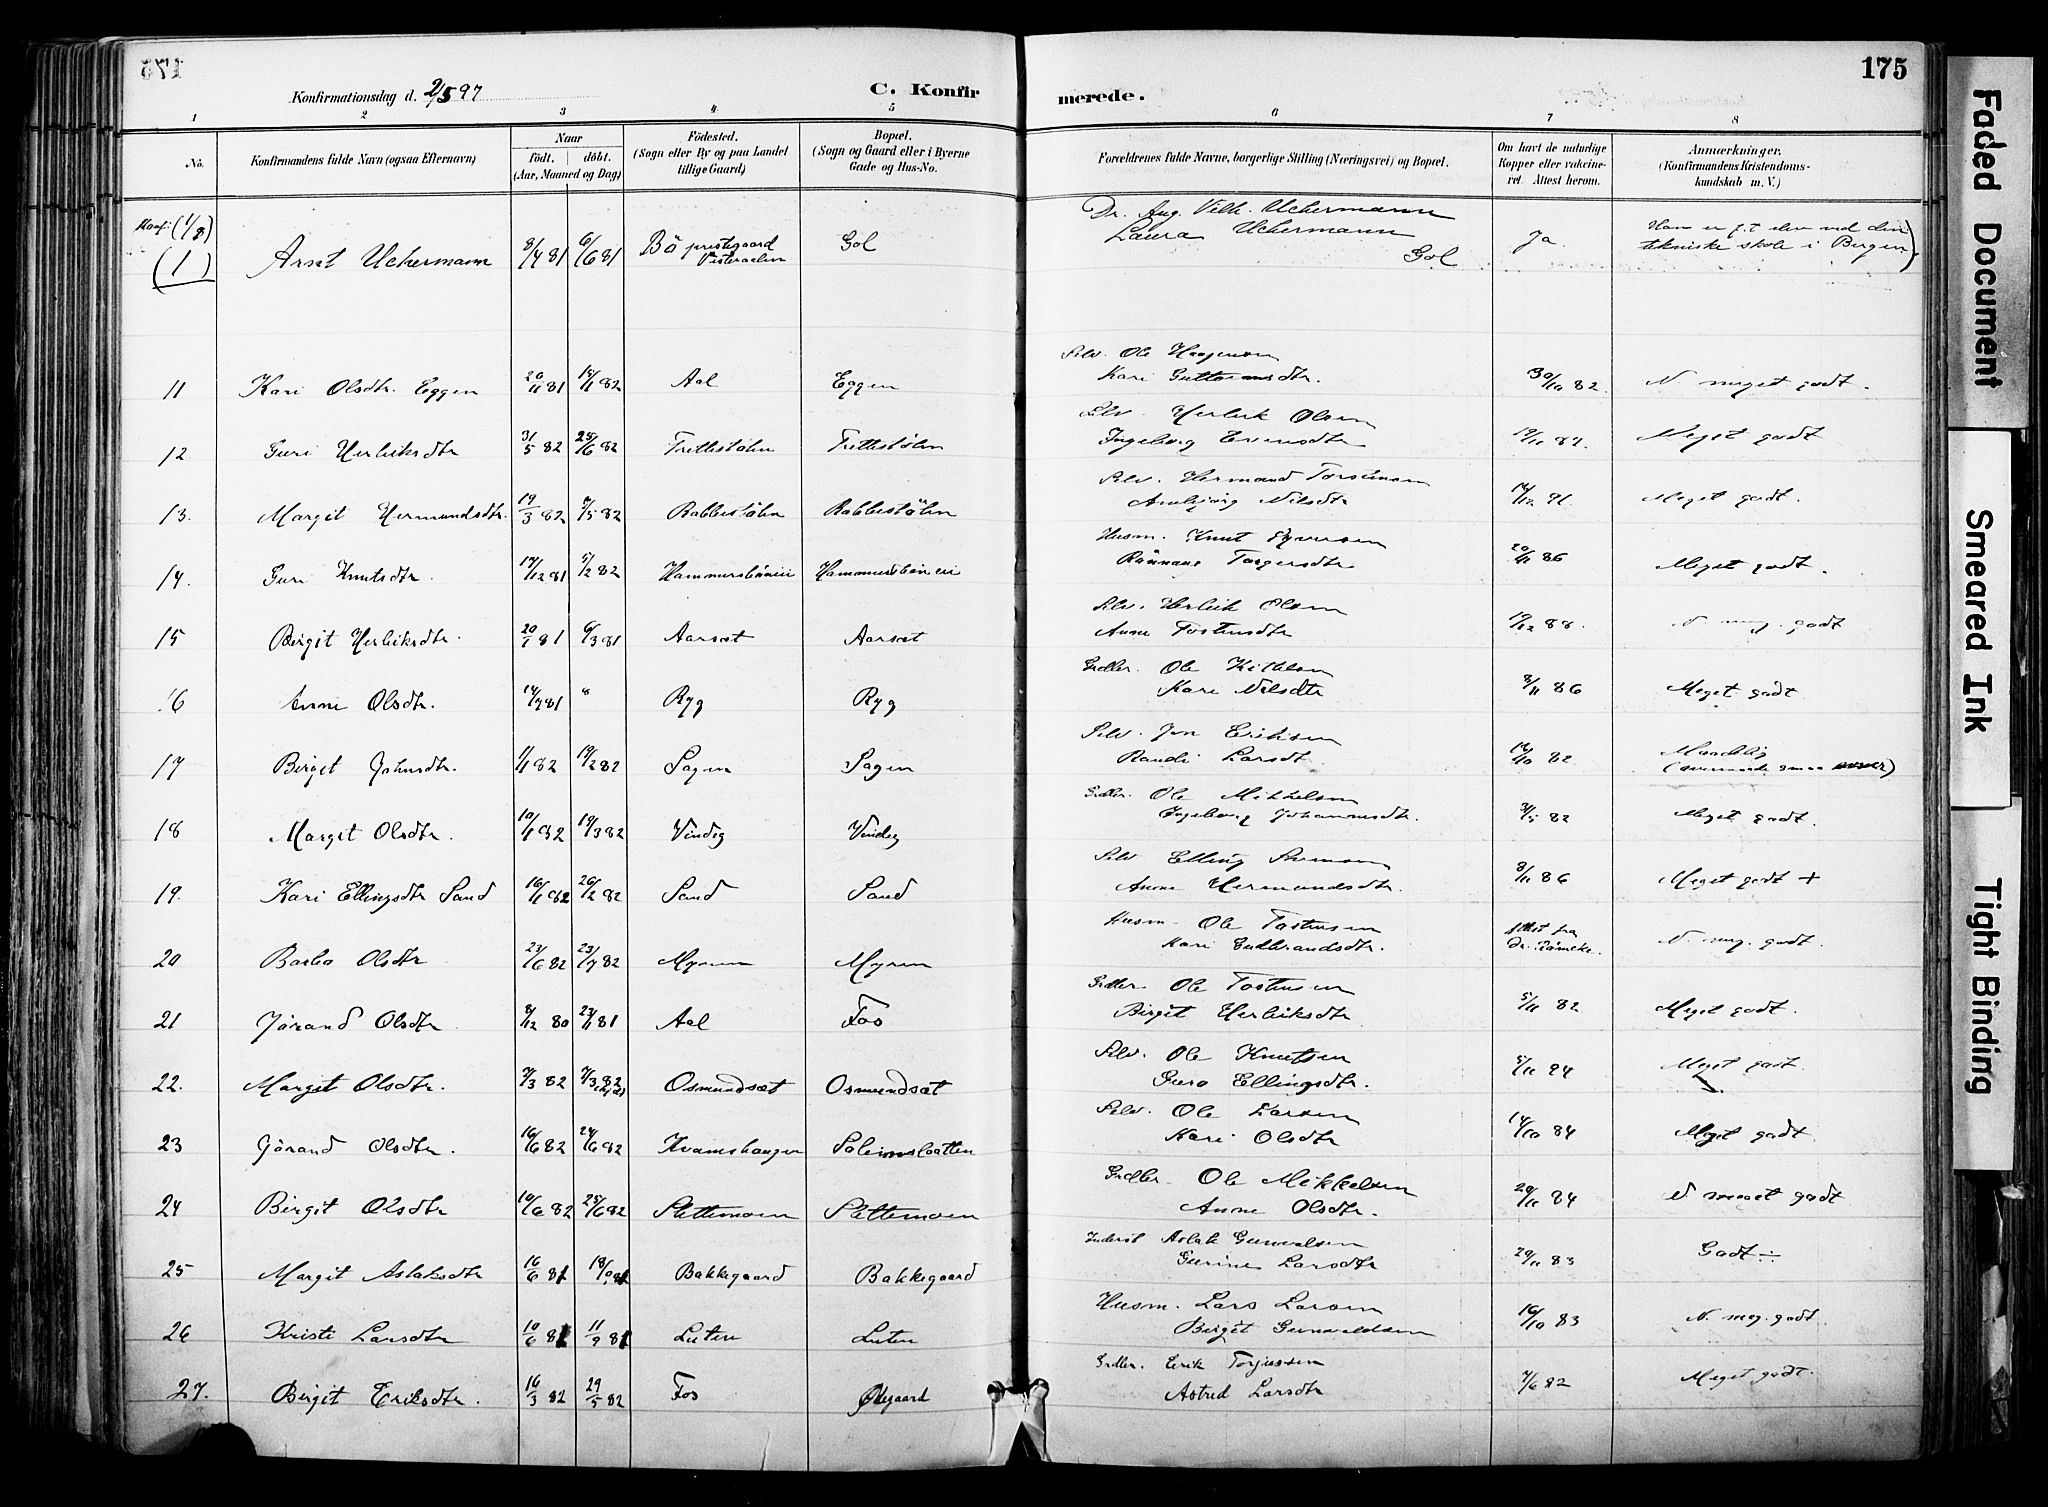 175
Konfirmationsdag d. 2/5 97
C. Konfirmerede.
175
1 2 3 4 5 6 7 8
No.
Konfirmandens fulde Navn (ogsaa Efternavn)
Naar
födt. döbt.
(Aar, Maaned og Dag)
Födested.
(Sogn eller By og paa Landet
tillige Gaard)
Bopæl.
(Sogn og Gaard eller i Byerne
Gade og Hus-No.
Forældrenes fulde Navne, borgerlige Stilling (Næringsvei) og Bopæl.
Om havt de naturlige
Kopper eller vakcine-
ret. Attest herom.
Anmærkninger.
(Konfirmandens Kristendoms-
kundskab m. V.)
Konf. (1/8)
(1) Arnt Uchermann 8/4 81 6/6 81 Bö prestegaard Vesteraalen Gol
Dr. Aug. Vilh. Uchermann
Laura Uchermann
Gol
Ja
Han er p.t. elev ved den
tekniske skole i Bergen)
11 Kari Olsdtr. Eggen 20/11 81 18/11 82 Aal Eggen
Selv. Ole Haagensen
Kari Guttormsdtr. 30/10 82. N. meget godt.
12 Guri Herleiksdtr 31/5 82 25/6 82 Trettestölen Trettestölen
Selv. Herleik Olsen
Ingeborg Evensdtr Meget godt
13. Margit Hermundsdtr. 19/3 82 7/5 82 Rabbestölen Rabbestölen
Selv. Hermand Torstensen
Annbjörg Nilsdtr 14/12 91. Meget godt.
14. Guri Knutsdtr. 17/12 81 5/2 82 Hammersböneie Hammersböneie
Husm. Knut Syversen
Rönnaue Torgersdtr 20/11 86 Meget godt.
15 Birgit Herleiksdtr. 20/1 81 6/3 81 Aarset Aarset
Selv. Herleik Olsen
Anne Tostensdtr 17/12 88. N. meg. godt
16 Anne Olsdtr. 14/7 81 Ryg Ryg
Grdbr. Ole Kittelsen
Kari Nilsdtr 8/11 86 Meget godt
17 Birget Johnsdtr. 1/1 82 19/2 82 Sagen Sagen
Selv. Jon Eriksen
Randi Larsdt. 16/10 82 Maadelig
18 Margit Olsdtr. 10/1 82 19/3 82 Vindeg Vindeg
Grdbr. Ole Mikkelsen
Ingeborg Johannesdtr. 3/5 82 Meget godt.
19. Kari Ellingsdtr Sand 16/1 82 26/2 82 Sand Sand
Selv Elling
Anne Hermundsdtr. 8/11 86 Meget godt +
20 Barbo Olsdtr 23/6 82 23/7 82 Myren Myren
Husm. Ole Tostensen
Kari Gudbrandsdtr. Attest fra
Dr. N. meg. godt.
21 Jörand Olsdtr 8/12 80 23/1 81 Aal Fos
Grdbr. Ole Tostensen
Birgit Herleiksdtr. 5/11 82 Meget godt.
22. Margit Olsdtr. 7/3 82 7/3 82 Osmundsæt Osmundsæt
Selv. Ole Knutsen
Guro Ellingsdtr. 5/11 84 Meget godt.
23 Jörand Olsdtr. 16/6 82 24/6 82 Kvamshaugen Soleimslaatten
Selv. Ole Larsen
Kari Olsdtr 14/10 84 Meget godt
24 Birgit Olsdtr 10/6 82 25/6 82 Slettemoen Slettemoen
Grdbr. Ole Mikkelsen
Anne Olsdtr. 20/11 84 N meget godt
25 Margit Aslaksdtr 16/6 81 Bakkegaard Bakkegaard
Inderst Aslak Gunvalsen
Gurine Larsdtr 29/11 83 Godt ÷
26 Kristi Larsdtr 10/6 81 11/9 81 Luten Luten
Husm. Lars Larsen
Birgit Gunvaldsen 16/10 83 N. meg. godt
27. Birgit Eriksdtr. 16/3 82 29/5 82 Fos Ødegaard
Grdbr. Erik Torjussen
Astrid Larsdtr 7/6 82 Meget godt.
Faded Document
Smeared Ink
Tight Binding